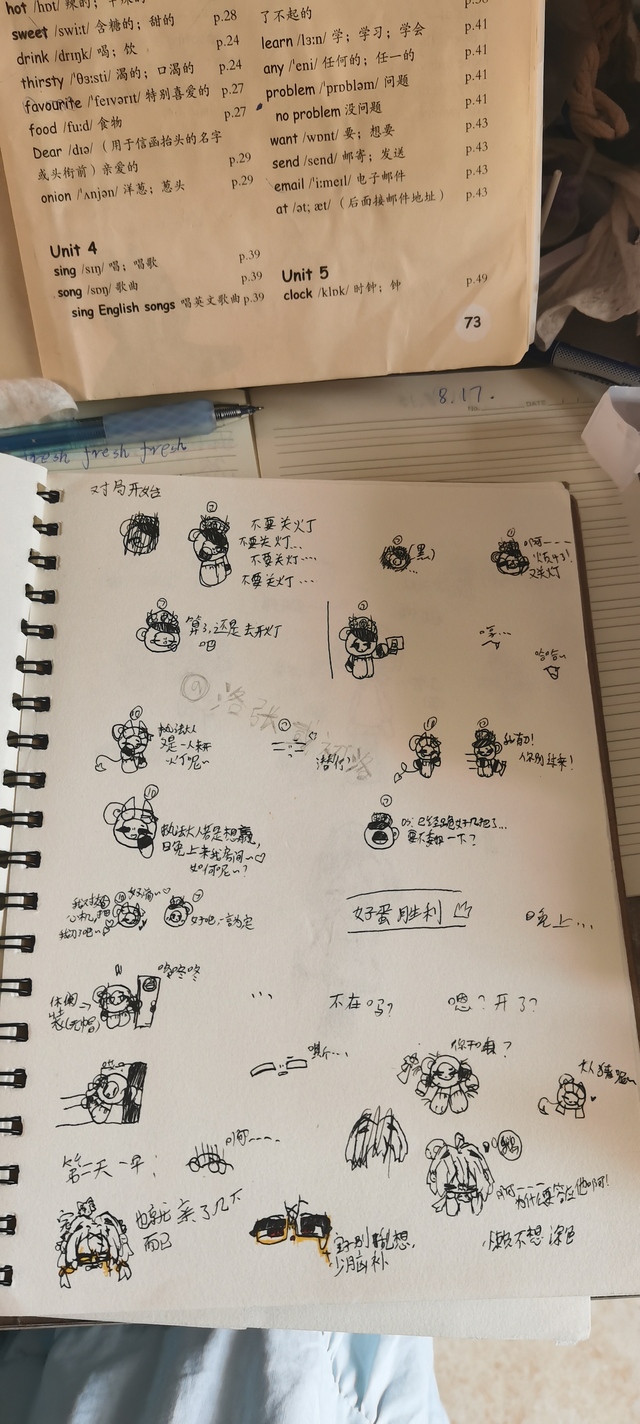 hot /hɒt/ 辣的；
p.28
sweet /swi:t/ 含糖的；甜的
p.24
drink /drɪŋk/ 喝；饮
p.24
thirsty /'θɜ:sti/ 渴的；口渴的
p.27
favourite /'feɪvərɪt/ 特别喜爱的
p.27
food /fu:d/ 食物
Dear /dɪə/ （用于信函抬头的名字
或头衔前）亲爱的
p.29
onion /'ʌnjən/ 洋葱；葱头
p.29
Unit 4
sing /sɪŋ/ 唱；唱歌
p.39
song /sɒŋ/ 歌曲
p.39
sing English songs 唱英文歌曲 p.39
了不起的
learn /lɜ:n/ 学；学习；学会
p.41
any /'eni/ 任何的；任一的
p.41
problem /'prɒbləm/ 问题
p.41
no problem 没问题
p.41
want /wɒnt/ 要；想要
p.43
send /send/ 邮寄；发送
p.43
email /'i:meɪl/ 电子邮件
p.43
at /ət; æt/ （后面接邮件地址）
p.43
Unit 5
clock /klɒk/ 时钟；钟
p.49
73
8.17.
No.
DATE
fresh fresh
对局开始
不要关灯
不要关灯...
不要关灯....
不要关灯...
(黑)
啊一一一
烦死了!
又关灯
算了,还是去开灯
吧
哼...
哈哈~
执法大人
又是一人来开
灯呢~
潜行
我有刀!
你别过来!
执法大人若是想赢,
今晚上来我房间~♡
如何呢~?
好吧,一言为定
好蛋胜利
晚上...
咚咚咚
休闲
装(无帽)
...
不在吗?
嗯?开了?
嘶...
你干啥?
第二天一早:
啊~~~
也就亲了几下
而已
宝子别乱想,
少脑补
懒不想涂色